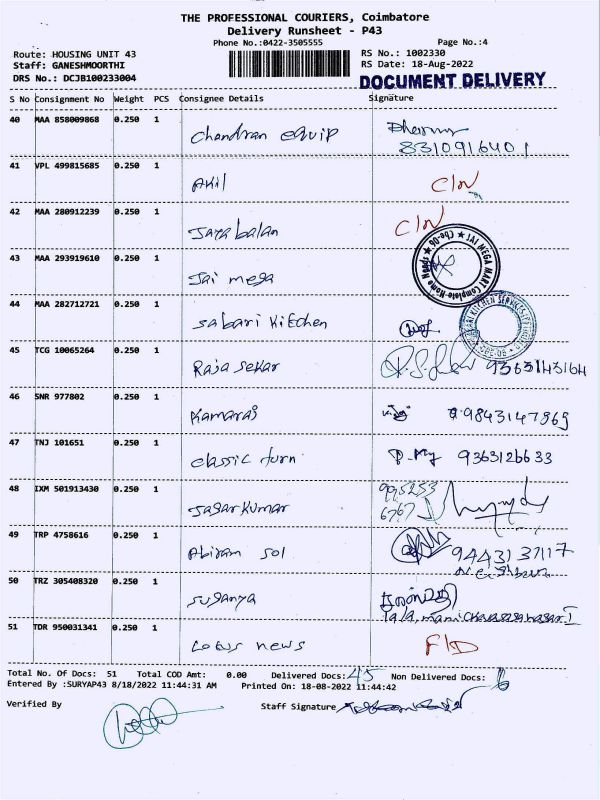 THE PROFESSIONAL COURIERS, Coimbatore
Delivery Runsheet - P43
Phone No.:0422-3505555 Page No.:4
Route: HOUSING UNIT 43 RS No.: 1002330
Staff: GANESHMOORTHI RS Date: 18-Aug-2022
DRS No.: DCJB100233004 DOCUMENT DELIVERY
S No Consignment No Weight PCS Consignee Details Signature
40 MAA 858009868 0.250 1 Chandran equip 8310916401
41 VPL 499815685 0.250 1 Akil C/N
42 MAA 280912239 0.250 1 Jaya balan C/N
43 MAA 293919610 0.250 1 Jai mega
JAI MEGA MART Complete Home Needs ★ Cbe-06 ★
44 MAA 282712721 0.250 1 Sabari Kitchen
KITCHEN SERVICES
45 TCG 10065264 0.250 1 Raja sekar 9363143164
46 SNR 977802 0.250 1 Kamaraj 9843147969
47 TNJ 101651 0.250 1 classic turn 9363126633
48 IXM 501913430 0.250 1 Sasar Kumar 995253
6767
49 TRP 4758616 0.250 1 Abiram sol 9443137117
50 TRZ 305408320 0.250 1 Suganya
51 TDR 950031341 0.250 1 Lotus news F/D
Total No. Of Docs: 51 Total COD Amt: 0.00 Delivered Docs: 45 Non Delivered Docs: 6
Entered By :SURYAP43 8/18/2022 11:44:31 AM Printed On: 18-08-2022 11:44:42
Verified By Staff Signature